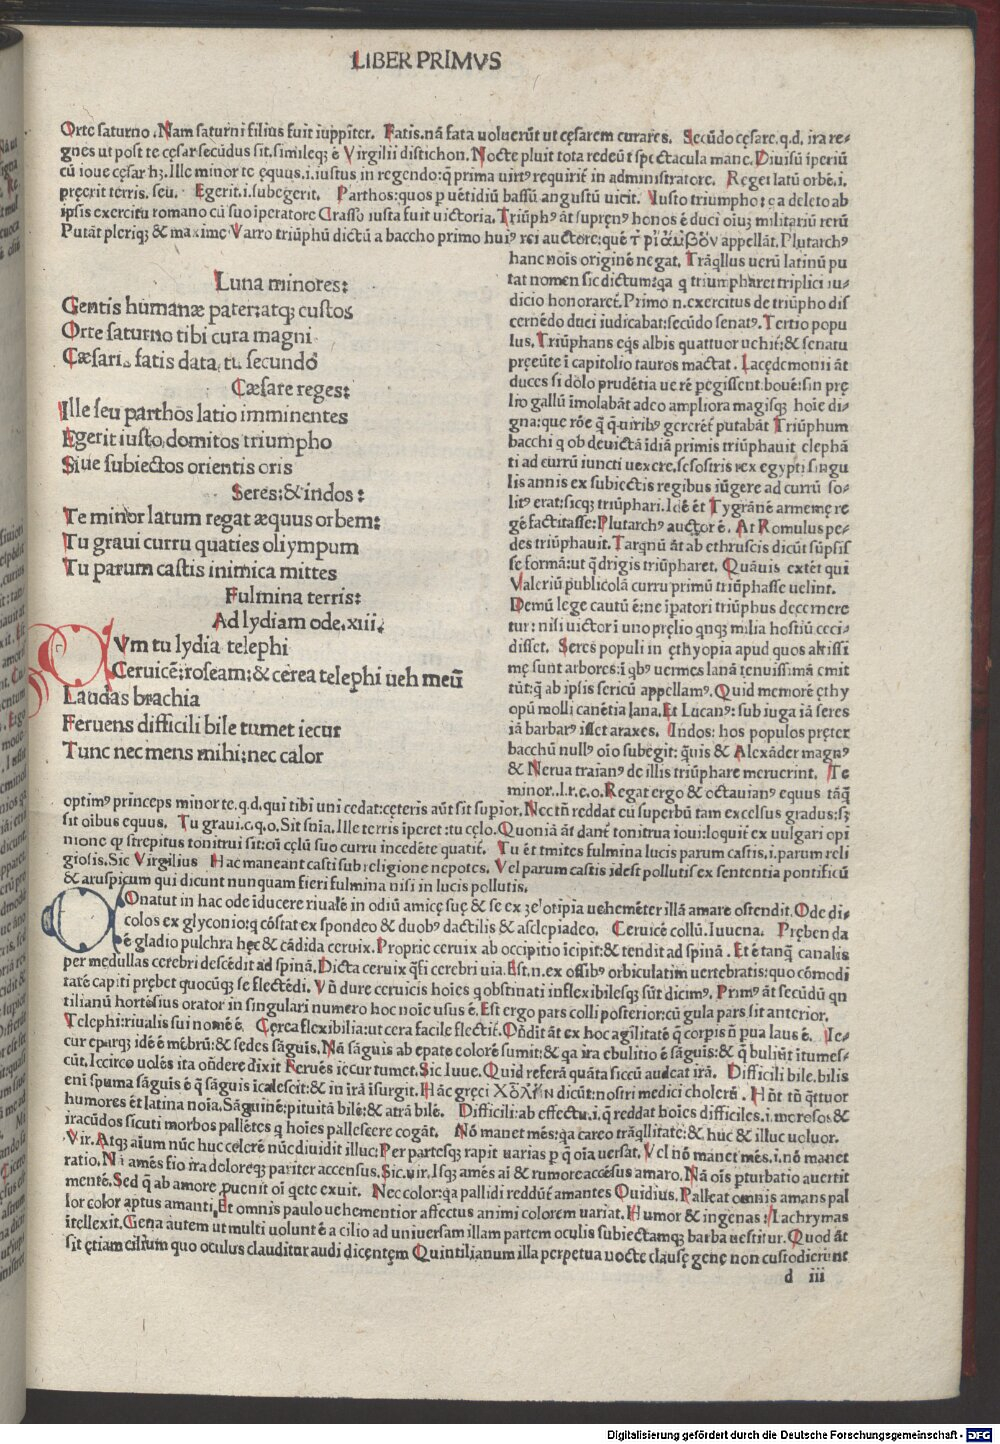 LIBER PRIMVS
Orte saturno. Nam saturni filius fuit iuppiter. Fatis. nã fata uoluerũt ut cęsarem curares. Secũdo cęsare. q.d. ita re-
gnes ut post te cęsar secũdus sit. simileq; ē Virgilii distichon. Nocte pluit tota redeũt spectacula mane. Diuisũ iperiũ
cũ ioue cęsar hʒ. Ille minor te ęquus. i. iustus in regendo: q̃ prima uirtꝰ requirit̃ in administratore. Reget latũ orbē. i.
pręerit terris. seu. Egerit. i. subegerit. Parthos: quos p uētidiũ bassũ angustũ uicit. Iusto triumpho: ea deleto ab
ipsis exercitu romano cũ suo iperatore Crasso iusta fuit uictoria. Triũphꝰ ãt supręnꝰ honos ē duci oiuʒ militariũ rerũ
Putãt pleriq; & maxime Varro triũphũ dictũ a baccho primo huiꝰ rei auctore: quē τ ρίαμβον appellãt. Plutarchꝰ
hanc nois originē negat. Trãqllus uerũ latinũ pu
tat nomen sic dictum: qa q triumpharet triplici iu-
dicio honoraret̃. Primo n. exercitus de triũpho dis
cernēdo duci iudicabat: secũdo senatꝰ. Tertio popu
lus. Triũphans eq̃s albis quattuor uehit̃: & senatu
pręeũte ĩ capitolio tauros mactat. Lacędemonii ãt
duces si dolo prudētia ue rē pegissent bouē: sin prę
lio gallũ ĩmolabãt adeo ampliora magisq; hoie di-
gna: que rõe q̃ q̃ uiribꝰ gererēt̃ putabãt Triũphum
bacchi q ob deuictã ĩdiã primis triũphauit elephã
ti ad currũ iuncti uexere. sesostris rex egypti singu
lis annis ex subiectis regibus iũgere ad currũ so-
litꝰ erat: sicq; triũphari. Idē et Tygranē armenię re
gē factitasse: Plutarchꝰ auctor ē. At Romulus pe-
des triũphauit. Tarqnũ ãt ab ethruscis dicũt sũpsis
se formã: ut q̃drigis triũpharet. Quãuis extēt qui
Valeriũ publicolã curru primũ triũphasse uelint.
Demũ lege cautũ ē: ne ĩpatori triũphus decernere
tur: nisi uictor ĩ uno pręlio qnq; milia hostiũ ceci-
disset. Seres populi in ęthyopia apud quos altissi
mę sunt arbores: ĩ qbꝰ uermes lanã tenuissimã emit
tũt: q̃ ab ipsis sericũ appellamꝰ. Quid memorē ęthy
opũ molli canētia lana. Et Lucanꝰ: sub iuga iã seres
iã barbarꝰ isset araxes. Indos: hos populos pręter
bacchũ nullꝰ oĩo subegit: q̃uis & Alexãder magnꝰ
& Nerua traianꝰ de illis triũphare meruerint. Te
minor. l. r. e. o. Regat ergo & octauianꝰ equus tãq̃
Luna minores:
Gentis humanæ pater: atq; custos
Orte saturno tibi cura magni
Cæsaris fatis data, tu secundo
Cæsare reges:
Ille seu parthos latio imminentes
Egerit iusto, domitos triumpho
Siue subiectos orientis oris
Seres: & indos:
Te minor latum regat æquus orbem:
Tu graui curru quaties olympum
Tu parum castis inimica mittes
Fulmina terris:
Ad lydiam ode. xiii.
Vm tu lydia telephi
Ceruicē; roseam; & cerea telephi ueh meũ
Laudas brachia
Feruens difficili bile tumet iecur
Tunc nec mens mihi; nec calor
optimꝰ princeps minor te. q.d. qui tibi uni cedat: cęteris aũt sit supior. Nec tñ reddat eũ superbũ tam excelsus gradus: sʒ
sit oibus equus. Tu graui. c. q. o. Sit snĩa. Ille terris iperet: tu cęlo. Quoniã ãt dant̃ tonitrua ioui: loquit̃ ex uulgari opi
nione qp strepitus tonitrui sit: cũ cęlũ suo curru incedēte quatit̃. Tu et tmites fulmina lucis parum castis. i. parum reli
giosis. Sic Virgilius Hac maneant casti sub religione nepotes. Vel parum castis idest pollutis ex sententia pontificũ
& aruspicum qui dicunt nunquam fieri fulmina nisi in lucis pollutis.
Onatur in hac ode ĩducere riualē in odiũ amicę suę & se ex zelotipia uehemēter illã amare ostendit. Ode di-
colos ex glyconio: q cõstat ex spondeo & duobꝰ dactilis & asclepiadeo. Ceruicē collũ. Iuuena. Pręben da
ē gladio pulchra hęc & cãdida ceruix. Proprie ceruix ab occipitio ĩcipit: & tendit ad spinã. Et ē tanq̃ canalis
per medullas cerebri descēdit ad spinã. Dicta ceruix q̃si cerebri uia. Est. n. ex ossibꝰ orbiculatim uertebratis: quo cõmodi
tatē capiti prębet quocũq; se flectēdi. Vñ dure ceruicis hoies q obstinati inflexibilesq; sũt dicimꝰ. Primꝰ ãt secũdũ qn
tilianũ hortēsius orator in singulari numero hoc noie usus ē. Est ergo pars colli posterior: cũ gula pars sit anterior.
Telephi: riualis sui nomē ē. Cęrea flexibilia: ut cera facile flectit̃. Oñdit ãt ex hoc agilitatē q̃ corpis ñ pua laus ē. Ie-
cur eparq; idē ē mēbrũ: & sedes sãguis. Nã sãguis ab epate colorē sumit: & qa ira ebulitio ē sãguis: & q̃ buliũt itumes-
cũt. Iccirco uolēs ira oñdere dixit Feruēs iecur tumet. Sic Iuue. Quid referã quãta siccũ audeat irã. Difficili bile. bilis
eni spuma sãguis ē q̃ sãguis ĩcalescit: & in irã ĩsurgit. Hãc gręci χολὴν dicũt: nostri medici cholerã. Hñt tñ q̃ttuor
humores et latina noĩa. Sãguinē: pituitã bilē: & atrã bilē. Difficili: ab effectu. i. q̃ reddat hoies difficiles. i. morosos &
iracũdos sicuti morbos pallētes q hoies pallescere cogãt. Nõ manet mēs: qa careo trãqllitate: & huc & illuc uoluor.
Vir. Atq; aĩum nũc huc celerē nũc diuidit illuc: Per partesq; rapit uarias p q̃ oĩa uersat. Vel nõ manet mēs. i. nõ manet
ratio. Nã amēs fio ira doloreq; pariter accensus. Sic. uir. Isq; amēs aĩ & rumore accēsus amaro. Nã oĩs pturbatio auertit
mentē. Sed q̃ ab amore puenit oĩ q̃ete exuit. Nec color: qa pallidi reddũt̃ amantes Ouidius. Palleat omnis amans pal
lor color aptus amanti. Et omnis paulo uehementior affectus animi colorem uariat. Humor & ingenas: lachrymas
ĩtellexit. Gena autem ut multi uolunt ē a cilio ad uniuersam illam partem oculis subiectamq; barba uestitur. Quod ãt
sit ętiam cilium quo oculus clauditur audi dicęntęm Quintilianum illa perpetua nocte clausę genę non custodierunt
d iii
Digitalisierung gefördert durch die Deutsche Forschungsgemeinschaft - DFG